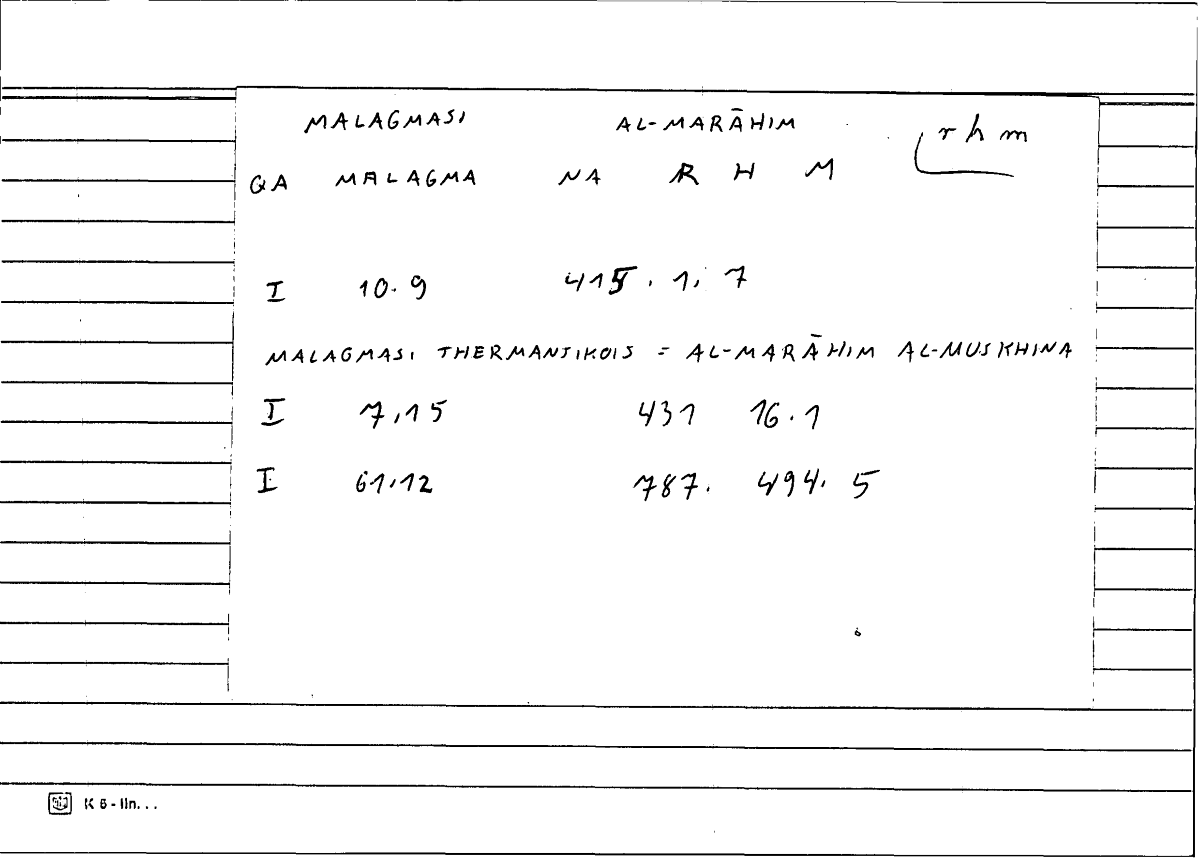 MALAGMASI AL-MARĀHIM rhm
QA MALAGMA NA R H M
I 10.9 415. 1. 7
MALAGMASI THERMANTIKOIS = AL-MARĀHIM AL-MUSKHINA
I 7,15 431 16.1
I 61,12 787. 494. 5
K 6 - lin...